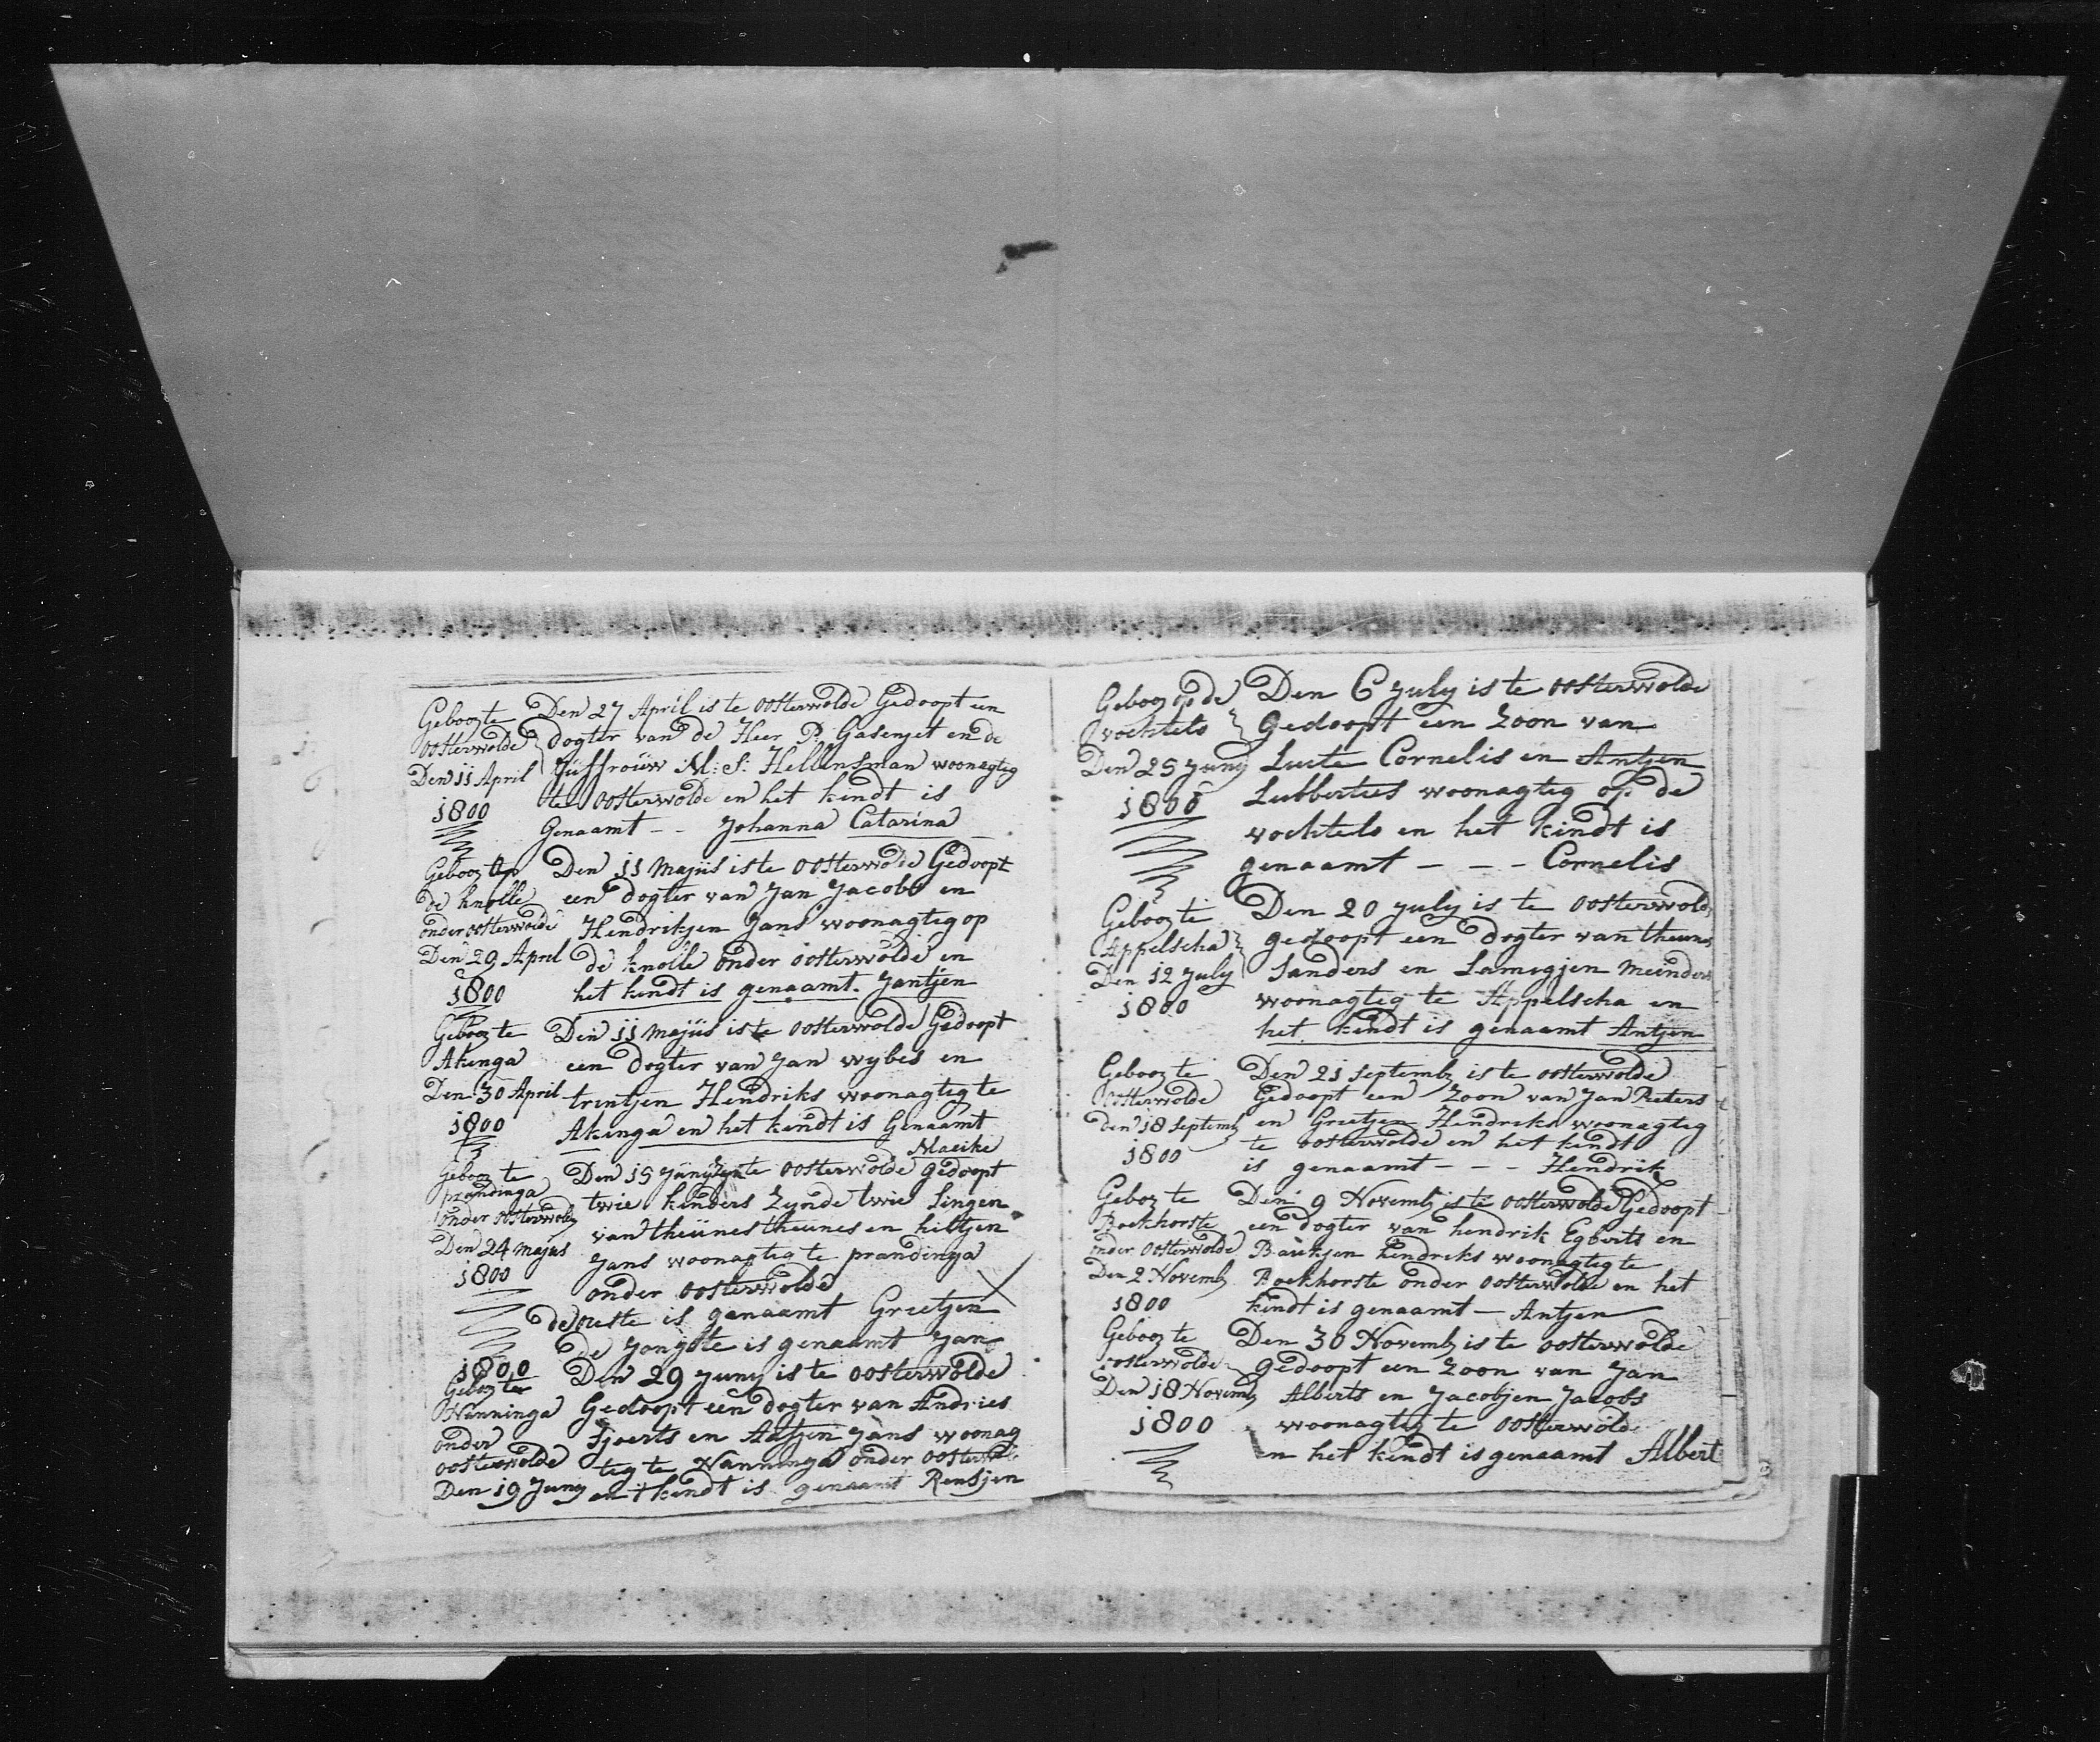 Gebooz te
oosterwolde
Den 11 April
1800
Den 27 April is te oosterwolde Gedoopt een
dogter van de Heer P. Gasenjet en de
Juffrouw M: S: Hellensman woonagtig
te oosterwolde en het kindt is
Genaamt - - Johanna Catarina
Gebooz op
de knolle
onder oosterwolde
Den 29 April
1800
Den 11 Majus is te oosterwode Gedoopt
een dogter van Jan Jacobs en
Hendrikjen Jans woonagtig op
de knolle onder oosterwolde en
het kindt is genaamt. Jantjen
Gebooz te
Akinga
Den 30 April
1800
Den 11 Majus is te oosterwolde Gedoopt
een dogter van Jan wybes en
trintjen Hendriks woonagtig te
Akinga en het kindt is Genaamt
Maeike
Gebooz te
prandinga
onder oosterwolde
Den 24 Majus
1800
Den 15 Juny te oosterwolde gedoopt
twie kinders Zynde twie lingen
van theunes theunes en hiltjen
Jans woonagtig te prandinga
onder oosterwolde
de ouste is genaamt Greetjen
De Jongste is genaamt Jan
1800
Gebooz te
Nanninga
onder
oosterwolde
Den 19 Juny
Den 29 Juny is te oosterwolde
Gedoopt een dogter van Andries
Tjoerts en Antjen Jans woonag
tig te Nanninga onder oosterwolde
en t kindt is genaamt Rensjen
Gebooz op de
vochtelo
Den 25 Juny
1800
Den 6 July is te oosterwolde
Gedoopt een Zoon van
Luite Cornelis en Antjen
Lubberties woonagtig op de
vochtelo en het kindt is
genaamt - - - Cornelis
Gebooz te
Appelscha
Den 12 July
1800
Den 20 July is te oosterwolde
gedoopt een dogter van theunes
Sanders en Lamigjen Meinders
woonagtig te Appelscha en
het kindt is genaamt Antjen
Gebooz te
oosterwolde
den 18 Septemb
1800
Den 21 Septemb is te oosterwolde
Gedoopt een Zoon van Jan Pieters
en Grietjen Hendriks woonagtig
te oosterwolde en het kindt
is genaamt - - - Hendrik
Gebooz te
Boekhorste
onder oosterwolde
Den 2 Novemb
1800
Den 9 Novemb is te oosterwolde Gedoopt
een dogter van hendrik Egberts en
Baukjen hendriks woonagtig te
Boekhorste onder oosterwolde en het
kindt is genaamt - Antjen
Gebooz te
oosterwolde
Den 18 Novemb
1800
Den 30 Novemb is te oosterwolde
Gedoopt een zoon van Jan
Alberts en Jacobjen Jacobs
woonagtig te oosterwolde
en het kindt is genaamt Albert